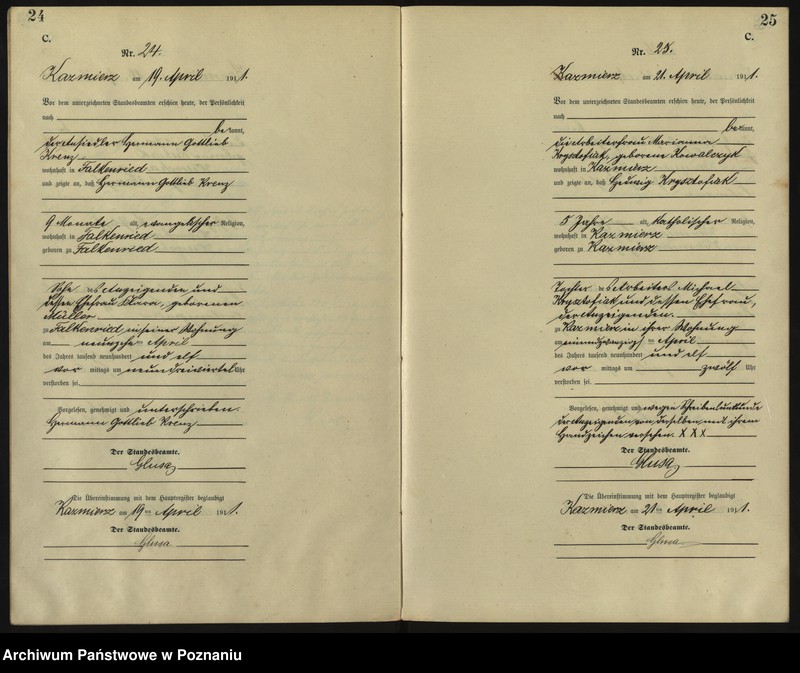 24
C.
Nr. 24.
Kazmierz am 19. April 1911.
Vor dem unterzeichneten Standesbeamten erschien heute, der Persönlichkeit
nach
bekannt,
der Ansiedler Hermann Gottlieb
Krenz
wohnhaft in Falkenried
und zeigte an, daß Hermann Gottlieb Krenz
9 Monate alt, evangelischer Religion,
wohnhaft in Falkenried
geboren zu Falkenried
Sohn des Anzeigenden und
dessen Ehefrau Klara, geborenen
Müller
zu Falkenried in seiner Wohnung
am neunzehn April
des Jahres tausend neunhundert und elf
vor mittags um neundreiviertel Uhr
verstorben sei.
Vorgelesen, genehmigt und unterschrieben.
Hermann Gottlieb Krenz
Der Standesbeamte.
Glusa
Die Übereinstimmung mit dem Hauptregister beglaubigt
Kazmierz am 19ten April 1911.
Der Standesbeamte.
Glusa
25
C.
Nr. 25.
Kazmierz am 21. April 1911.
Vor dem unterzeichneten Standesbeamten erschien heute, der Persönlichkeit
nach
bekannt,
die Arbeiterfrau Marianna
Krysztofiak, geborene Kowalczyk
wohnhaft in Kazmierz
und zeigte an, daß Hedwig Krysztofiak
5 Jahre alt, katholischer Religion,
wohnhaft in Kazmierz
geboren zu Kazmierz
Tochter des Arbeiters Michael
Krysztofiak und dessen Ehefrau,
der Anzeigenden.
zu Kazmierz in ihrer Wohnung
am einundzwanzig April
des Jahres tausend neunhundert und elf
vor mittags um zwölf Uhr
verstorben sei.
Vorgelesen, genehmigt und wegen Schreibensunkunde
der Anzeigenden von derselben mit ihrem
Handzeichen versehen. X X X
Der Standesbeamte.
Glusa
Die Übereinstimmung mit dem Hauptregister beglaubigt
Kazmierz am 21ten April 1911.
Der Standesbeamte.
Glusa
Archiwum Państwowe w Poznaniu